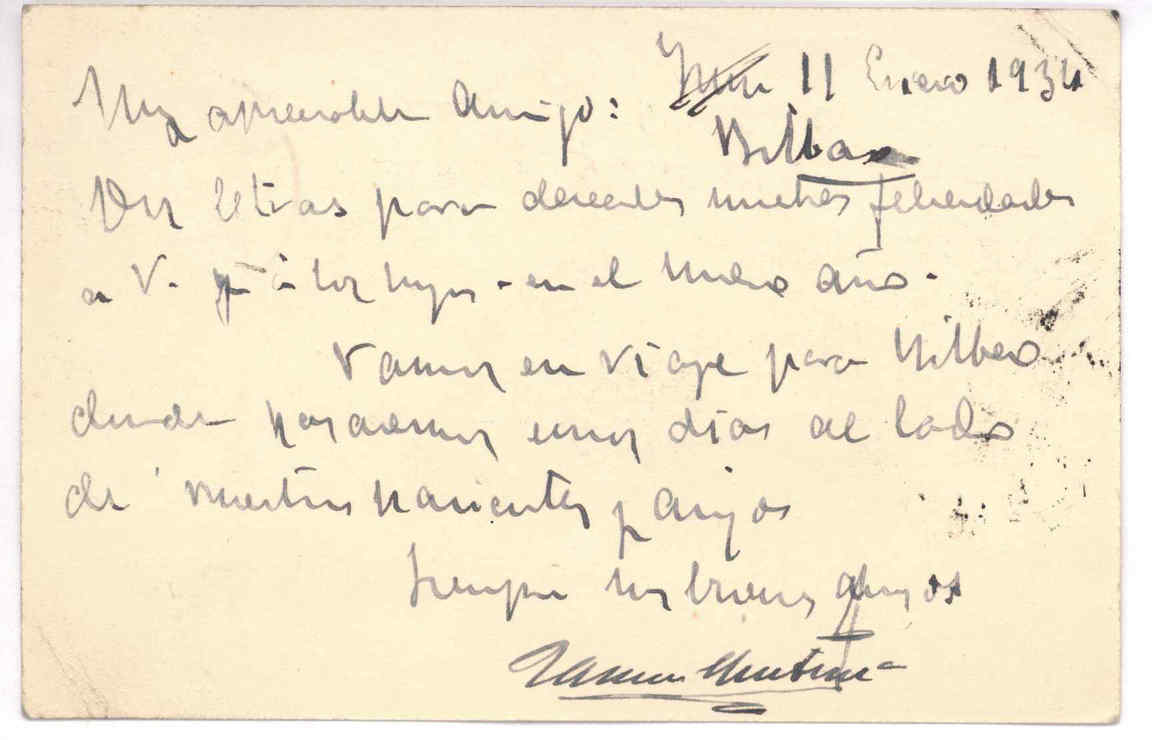 11 Enero 1934
Muy apreciable Amigo:
Bilbao
Dos letras para desearles muchas felicidades
a V. y á los hijos - en el nuevo año.
Vamos en viaje para Bilbao
donde pasaremos unos días al lado
de nuestros parientes y amigos
Siempre sus buenos amigos
Ramon